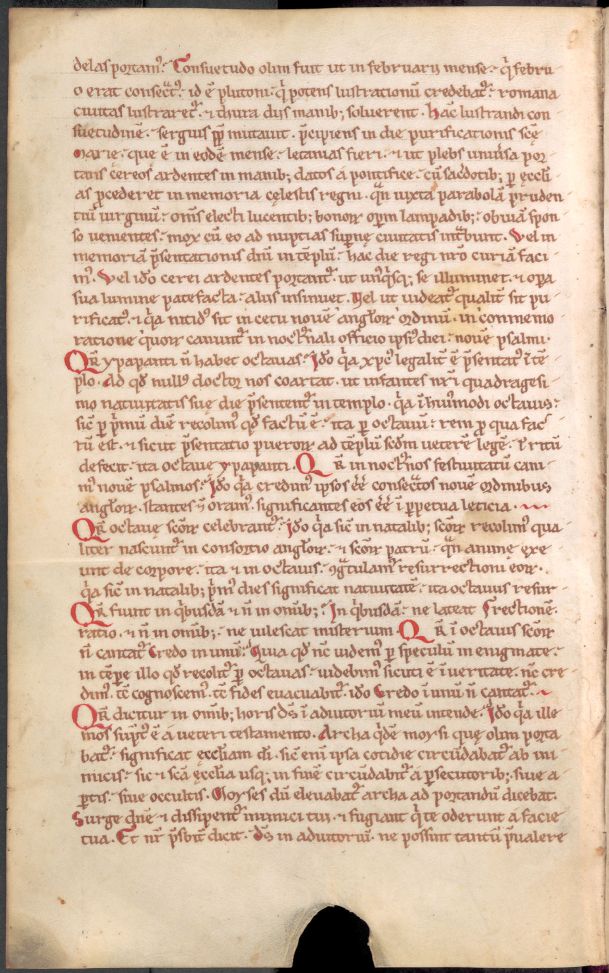 delas portam᷒. Consuetudo olim fuit ut in februarij mense. qͥ febru
o erat consecᷓt᷒. id ē plutoni. qͥ potens lustrationū credebat᷒. romana
ciuitas lustraret᷒. ⁊ thura dijs manib; soluerent. hāc lustrandi con
suetudinē. sergius pp̄ mutauit. p̄cipiens in die purificationis scę̄
Marie. que ē in eodē mense. letanias fieri. ⁊ ut plebs uniūsa por
tans cereos ardentes in manib; datos a pontifice. cū sac̄dotib; ꝑ ęccłi
as ꝓcederet in memoria cęlestis regni. qn̄ iuxta parabolā pruden
tiū uirginū. om̄s electi lucentib; bonoꝝ opm̄ lampadib; obuiā spon
so uenientes. mox cū eo ad nuptias supnę ciuitatis int̄bunt. Vel in
memoriā p̄sentationis dn̄i in tēplū. hac die regi nr̄o curiā faci
m᷒. Vel id̊o cerei ardentes portant᷒. ut unꝰqͥsq; se illuminet. ⁊ opa
sua lumine patefacta. aliis insinuet. Vel ut uideat᷒ qualit̄ sit pu
rificat᷒. ⁊ qͥa nitid᷒ sit in cetu nouē angłoꝝ ordinū. in commemo
ratione quoꝝ canunt᷒ in noct᷒nali officio ipsi᷒ diei. nouē psalmi.
Qᷓr ypapanti n̄ habet octauas. Id̊o qͥa xp̄c legalit̄ ē p̄sentat᷒ ī tē
plo. Ad qd̄ null᷒ doctoꝝ nos coartat. ut infantes nr̄i quadragesi
mo natiuitatis sue die p̄sentent᷒ in templo. qͥa ī hui᷒modi octauis.
sic̄ ꝑ p̄mū diē recolim᷒ qd̄ factū ē. ita ꝑ octauū. rem ꝑ qua fac
tū est. ⁊ sicut p̄sentatio pueroꝝ ad tēplū scd̄m ueterē legē. ⁊ ritū
defecit. ita octaue ypapanti. Qᷓr in noct᷒nos festiuitatū cani
m᷒ nouē psalmos. Id̊o qͥa credim᷒ ipsos eē̄ consectos nouē ordinibus
angłoꝝ. stantes s̄ oram᷒. significantes eos eē̄ ī ꝑpetua leticia.
Qᷓr octauę scōꝝ celebrant᷒. Id̊o qͥa sic̄ in natalib; scōꝝ recolim᷒ qua
liter nascunt᷒ in consortio angłoꝝ. ⁊ scōꝝ patrū. qn̄ animę exe
unt de corpore. ita ⁊ in octauis. ꝯgᷓtulam᷒ resurrectioni eoꝝ.
qͥa sic̄ in natalib; p̄m᷒ dies significat natiuitatē. ita octauus resur
Qᷓr fiunt in qͥbusdā ⁊ n̄ in omīb; In qͥbusdā. ne lateat rectionē.
ratio. ⁊ n̄ in omīb; ne uilescat misterium. Qᷓr ī octauis scōꝝ
n̄ cantat᷒ Credo in unū. Quia qd̄ nc̄ uidem᷒ ꝑ speculū in enigmate.
in tēpe illo qd̄ recolit᷒ ꝑ octauas. uidebim᷒ sicuti ē ī ueritate. nc̄ cre
dim᷒. tc̄ cognoscem᷒. tc̄ fides euacuabit᷒. id̊o Credo ī unū n̄ cantat᷒.
Qᷓr dicitur in omīb; horis Ds̄ ī adiutoriū meū intende. Id̊o qͥa ille
mos supt᷒ ē a ueteri testamento. Archa qͥdē moysi quę olim porta
bat᷒. significat ęccłiam dī. sic̄ enī ipsa cotidie circūdabat᷒ ab ini
micis. sic ⁊ scā ęccłia usq; in finē circūdabit᷒ a ꝑsecutorib; siue a
ꝑtis. siue occultis. Moyses dū eleuabat᷒ archa ad portandū dicebat.
Surge dn̄e ⁊ dissipent᷒ inimici tui. ⁊ fugiant qͥ te oderunt a facie
tua. Et nr̄ p̄sbit̄ dicit. Ds̄ in adiutoriū. ne possint tantū p̄ualere